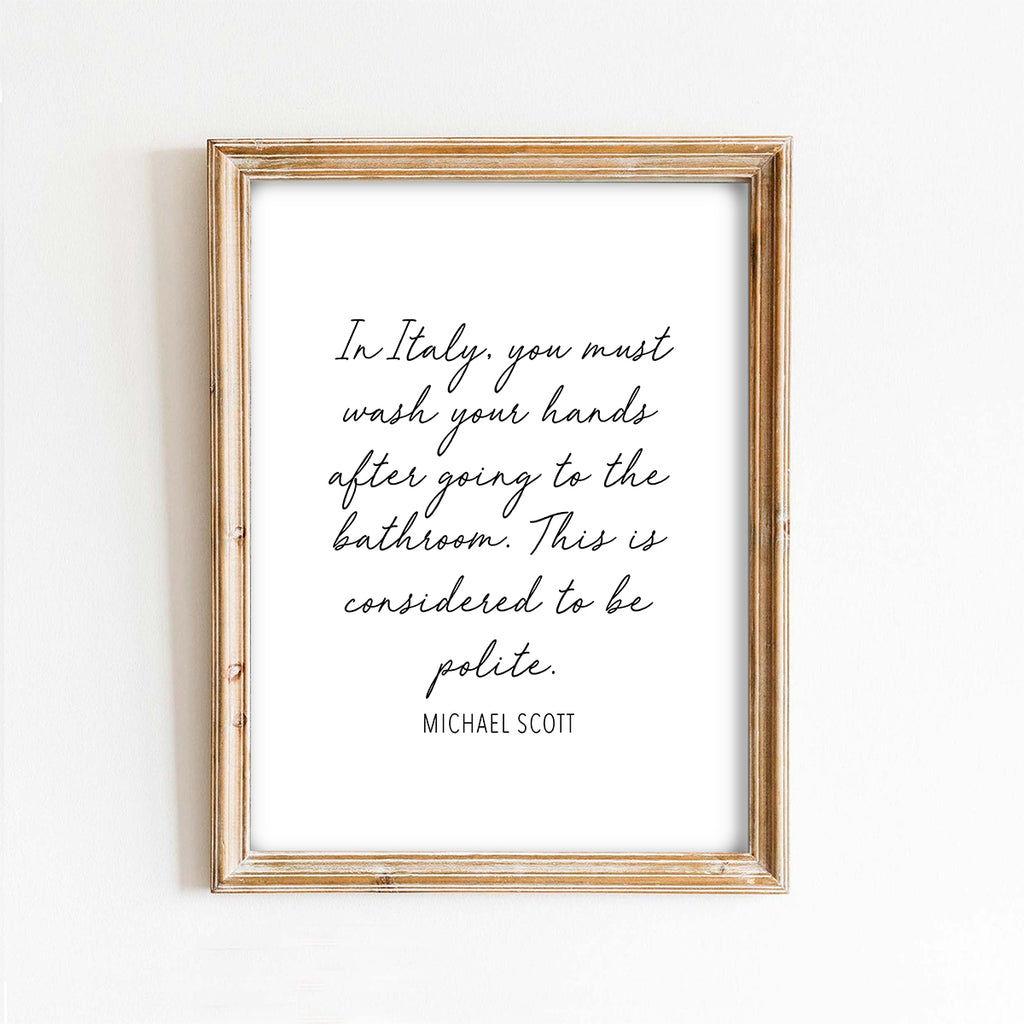 In Italy, you must
wash your hands
after going to the
bathroom. This is
considered to be
polite.
MICHAEL SCOTT